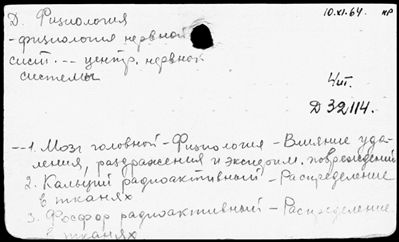 Д. Физиология
10.XI.64. нр
-физиология нервной
сист. -- центр. нервной
системы
4 иг.
Д 32114.
--1. Мозг головной - Физиология - Влияние уда-
ления, раздражения и эксперим. повреждений
2. Кальций радиоактивный - Распределение
в тканях
3. Фосфор радиоактивный - Распределение
в тканях